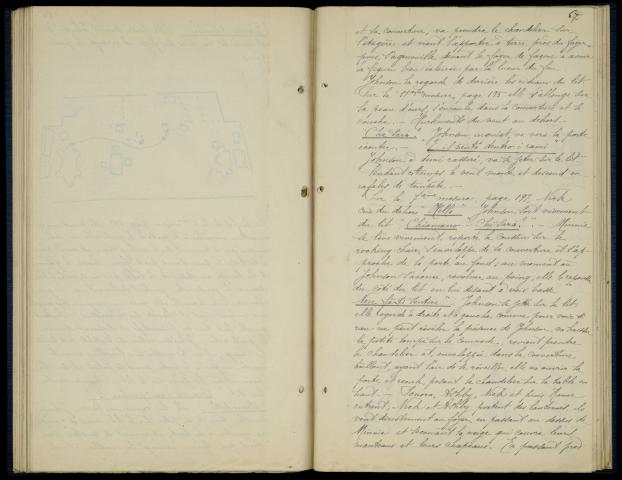 67
et la couverture, va prendre le chandelier sur
l'étagère et vient l'apporter à terre, près du foyer
puis, s'agenouille devant le foyer de façon à avoir
la figure bien éclairée par la lueur du feu.
Johnson la regarde de derrière les rideaux du lit
Sur la 11ème mesure, page 195 elle s'allonge sur
la peau d'ours, s'enroule dans la couverture et se
couche. — Hurlements du vent au dehors —
"Che sarà" Johnson, inquiet, va vers la porte
écouter. — "È il vento dentro i rami"
Johnson à demi rassuré, va se jeter sur le lit
Pendant ce temps le vent monte et devient en
rafales de tempête. —
Sur la mesure, page 197, Nick
crie du dehors "Hello" Johnson sort vivement
du lit "Chiamano" "Chi sarà?" — Minnie
se lève vivement, reporte le coussin sur le
rocking chair, s'enveloppe de la couverture et s'ap-
proche de la porte au fond, au moment où
Johnson s'avance, revolver au poing, elle le repousse
du côté du lit en lui disant à voix basse
Johnson se jette sur le lit,
elle regarde à droite et à gauche comme pour voir si
rien ne peut révéler la présence de Johnson, va
la petite lampe sur la commode, revient prendre
le chandelier et, enveloppée dans la couverture,
baillant, ayant l'air de se réveiller, elle va ouvrir la
porte, et posant le chandelier sur la table en
haut. — Sonora, Ashby, Nick et puis Rance
entrent, Nick et Ashby portent des lanternes, ils
vont directement au foyer, en passant au dessus de
Minnie et secouant la neige qui couvre leurs
manteaux et leurs chapeaux. En passant près